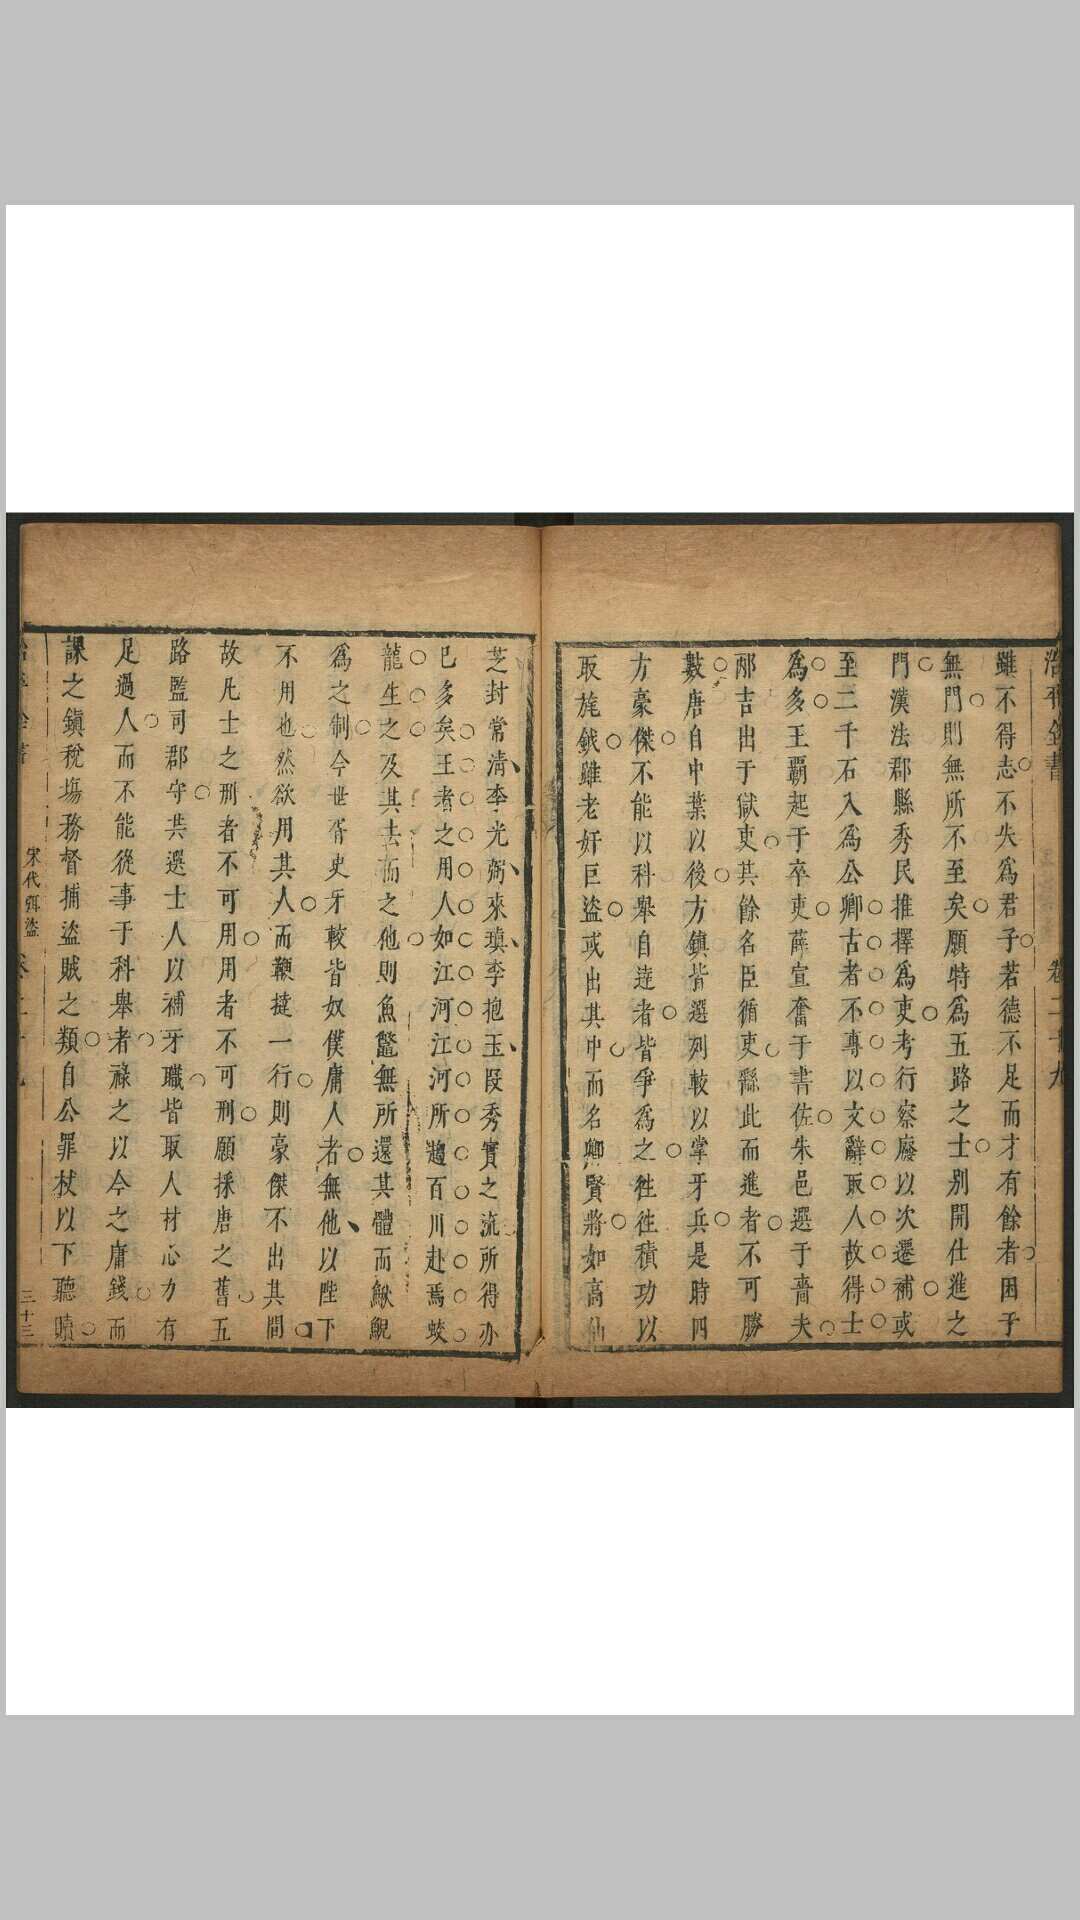 治平全書 卷二十九
雖不得志不失爲君子若德不足而才有餘者困于
無門則無所不至矣願特爲五路之士別開仕進之
門漢法郡縣秀民推擇爲吏考行察廉以次遷補或
至二千石入爲公卿古者不專以文辭取人故得士
爲多王覇起于卒吏薛宣奮于書佐朱邑選于嗇夫
邴吉出于獄吏其餘名臣循吏繇此而進者不可勝
數唐自中葉以後方鎭皆選列較以掌牙兵是時四
方豪傑不能以科舉自達者皆爭爲之徃徃積功以
取旄鉞雖老奸巨盜或出其中而名卿賢將如高仙
芝封常淸李光弼來瑱李抱玉段秀實之流所得亦
已多矣王者之用人如江河江河所趨百川赴焉蛟
龍生之及其去而之他則魚鼈無所還其體而鯢鰍
爲之制今世胥史牙較皆奴僕庸人者無他以陛下
不用也然欲用其人而鞭撻一行則豪傑不出其間
故凡士之刑者不可用用者不可刑願採唐之舊五
路監司郡守共選士人以補牙職皆取人材心力有
足過人而不能從事于科舉者祿之以今之庸錢而
課之鎭稅塲務督捕盜賊之類自公罪杖以下聽贖
宋代弭盜 三十三